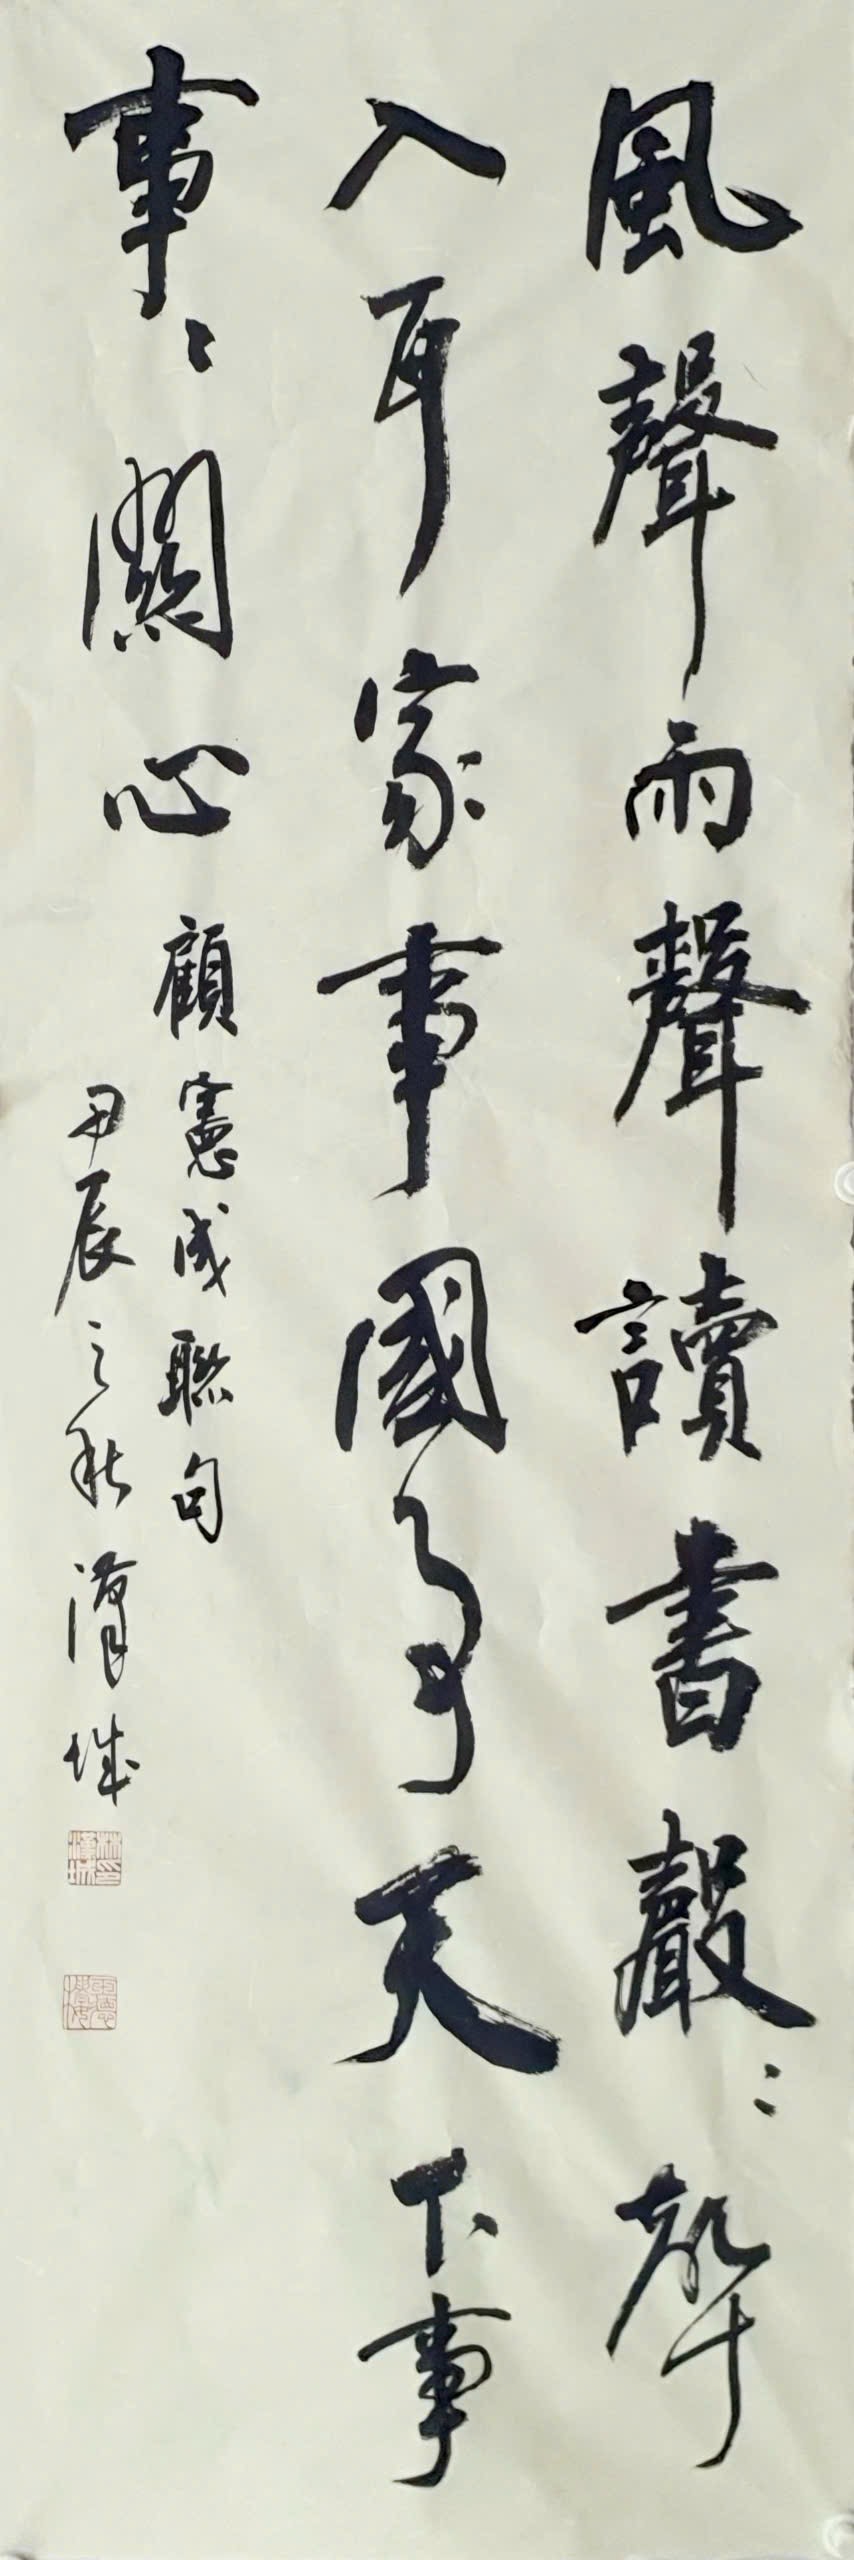 風聲雨聲讀書聲〻聲
入耳家事國事天下事
事〻關心
顧憲成聯句
甲辰之秋漢城
林印漢城